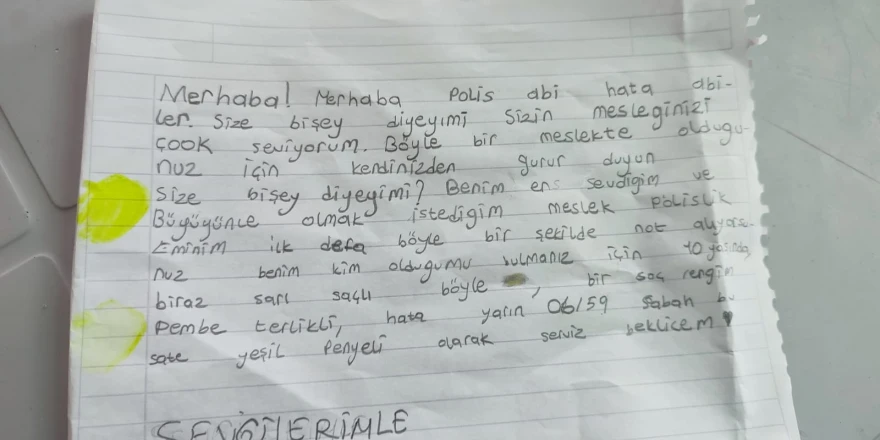 Merhaba! Merhaba Polis abi hata abi-
ler. Size bişey diyeyimi Sizin mesleginizi
çook seviyorum. Böyle bir meslekte oldugu-
nuz için kendinizden gurur duyun
Size bişey diyeyimi? Benim en sevdigim ve
Büyüyünce olmak istedigim meslek polislik
Eminim ilk defa böyle bir şekilde not alıyorsu-
nuz benim kim oldugumu bulmanız için 10 yaşında,
biraz sarı saçlı böyle , bir saç rengim
Pembe terlikli, hata yarın 06/59 sabah bu
sate yeşil Penyeli olarak serviz beklicem
SEVGİLERİMLE